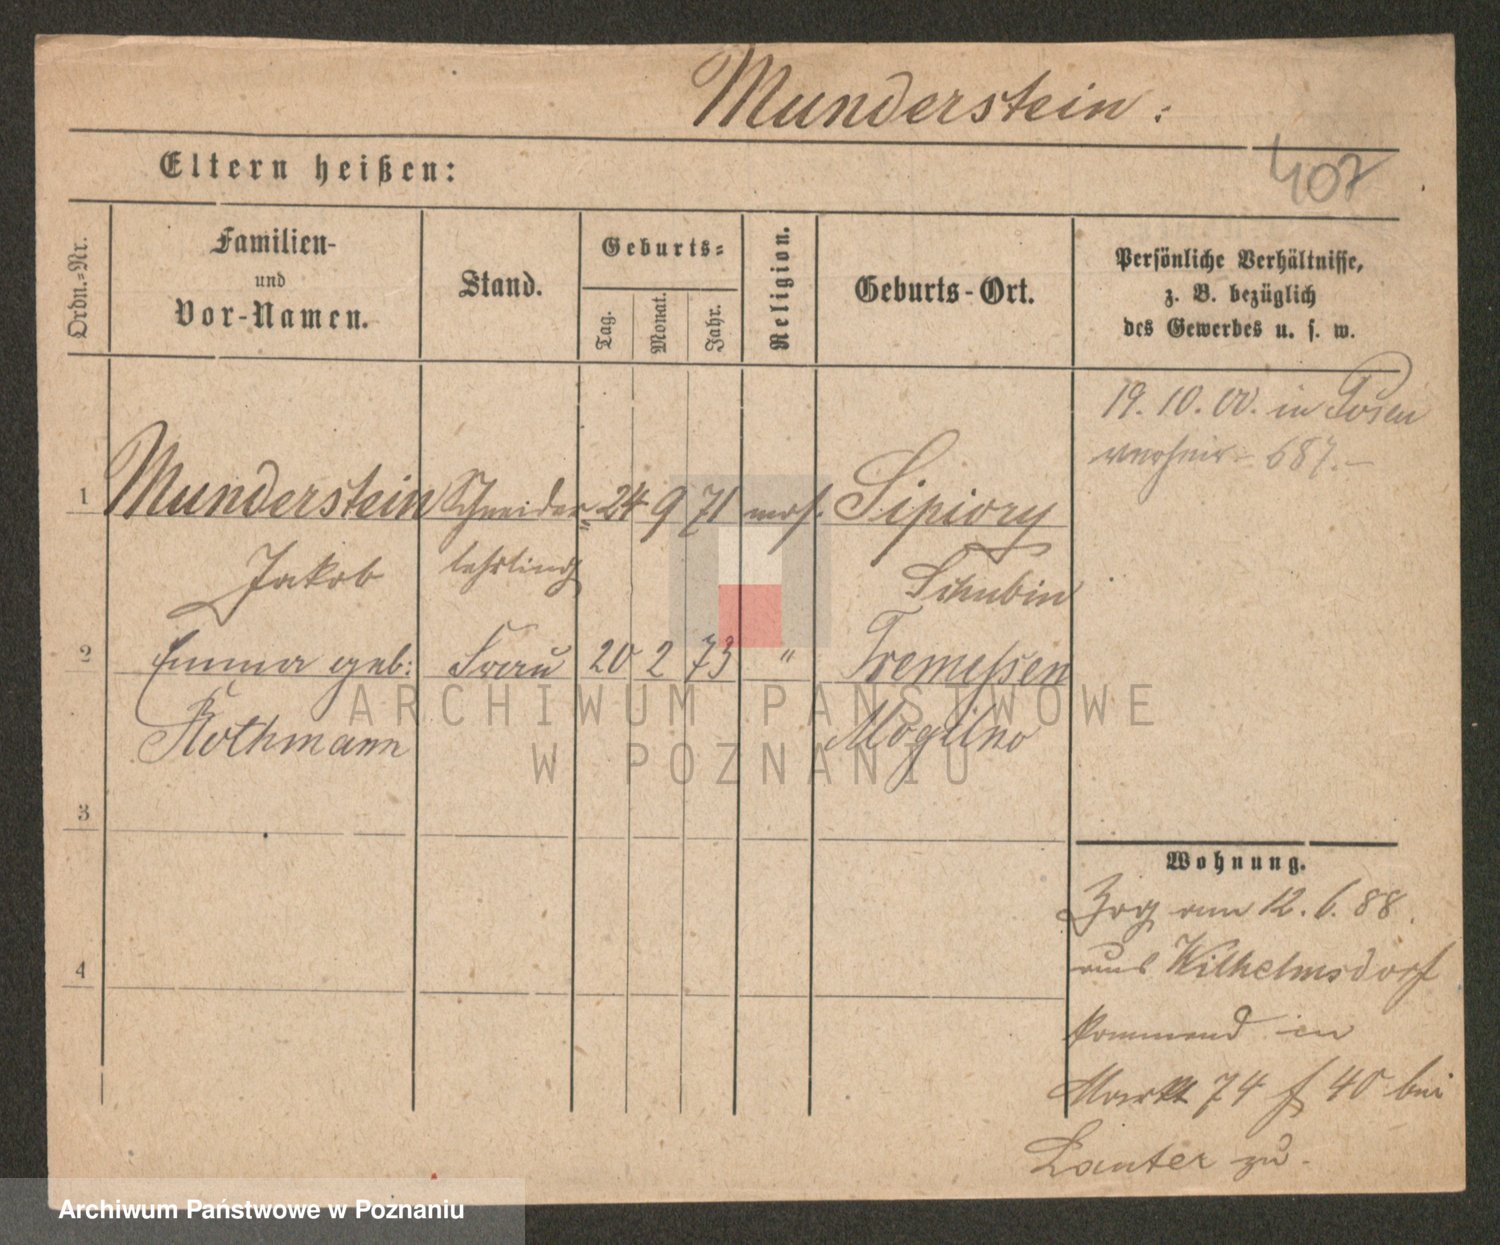 Munderstein:
407
Eltern heißen:
Ordn.-Nr.
Familien-
und
Vor-Namen.
Stand.
Geburts-
Tag.
Monat.
Jahr.
Religion.
Geburts-Ort.
Persönliche Verhältnisse,
z. B. bezüglich
des Gewerbes u. s. w.
19. 10. 00. in Posen
verheir. 687.-
1 Munderstein Schneider- 24 9 71 mos. Sipiory
Jakob lehrling Schubin
2 Emma geb: Frau 20 2 73 " Tremessen
Rothmann Mogilno
3
4
Wohnung.
Zog am 12. 6. 88.
aus Wilhelmsdorf
kommend in
Markt 74 f 40 bei
Lanter zu.
ARCHIWUM PAŃSTWOWE
W POZNANIU
Archiwum Państwowe w Poznaniu